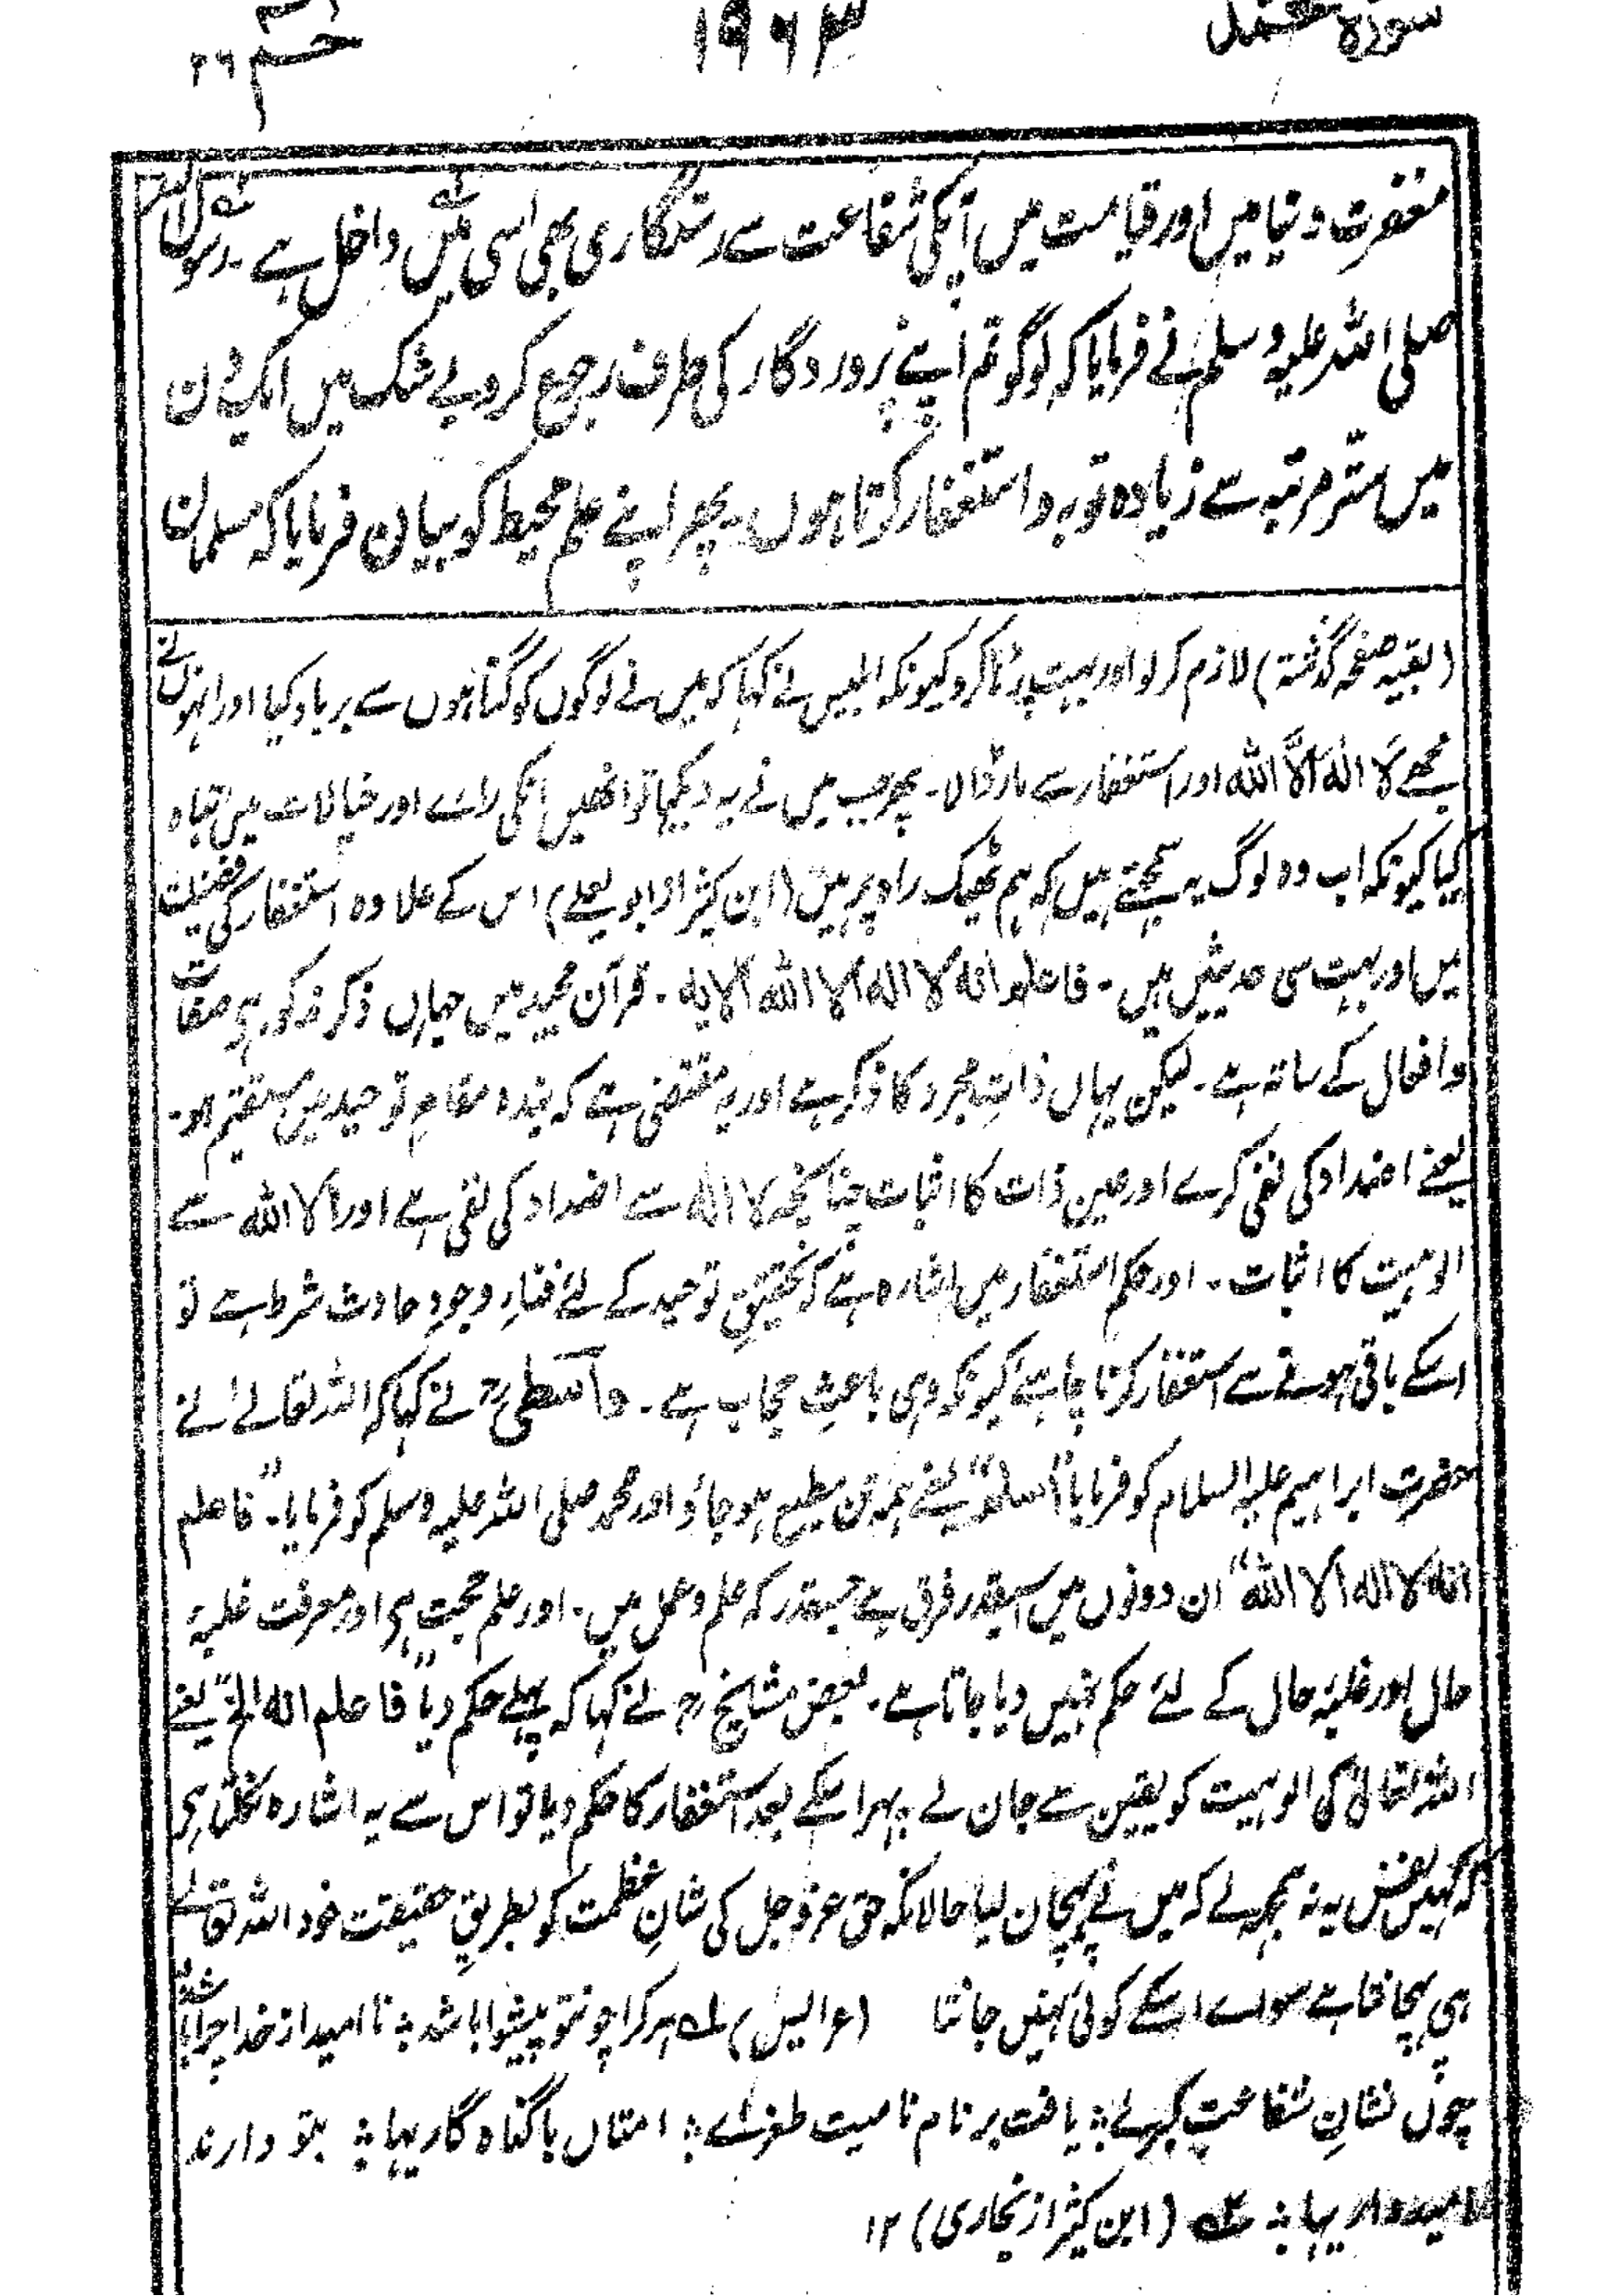 سورۃ محمد ۱۹۶۳ حٰم ۲۶
مغفرت دنیا میں اور قیامت میں آپکی شفاعت سے رستگاری بھی اسی میں داخل ہے۔ رسول اللہ
صلی اللہ علیہ وسلم نے فرمایا کہ لوگو تم اپنے پروردگار کی طرف رجوع کرو بے شک میں ایک دن
میں ستّر مرتبہ سے زیادہ توبہ و استغفار کرتا ہوں۔ پھر اپنے علم محیط کو بیان فرمایا کہ مسلمان
(بقیہ صفحہ گذشتہ) لازم کرلو اور بہت پڑہا کرو کیونکہ ابلیس نے کہا کہ میں نے لوگوں کو گناہوں سے برباد کیا اور انہوں نے
مجھے لَا الٰہَ اِلَّا اللہ اور استغفار سے مار ڈالا۔ پھر جب میں نے یہ دیکھا تو انھیں انکی رائے اور خیالات میں تباہ
کیا کیونکہ اب وہ لوگ یہ سمجھتے ہیں کہ ہم ٹھیک راہ پر ہیں (ابن کثیر از ابو یعلے) اس کے علاوہ استغفار کی فضیلت
میں اور بہت سی حدیثیں ہیں۔ فاعلم انہ لا الہ الا اللہ الایہ۔ قرآن مجید میں جہاں ذکر مذکور ہی صفات
وافعال کے ساتہ ہے۔ لیکن یہاں ذاتِ مجرد کا ذکر ہے اور یہ مقتضی ہے کہ بندہ مقامِ توحید میں مستقیم ہو۔
یعنے اضداد کی نفی کرے اور عین ذات کا اثبات چنانچہ لا الہ سے اضداد کی نفی ہے اور الا اللہ سے
الوہیت کا اثبات۔ اور حکم استغفار میں اشارہ ہے کہ تحقیقِ توحید کے لئے فنارِ وجودِ حادث شرط ہے تو
اسکے باقی ہونے سے استغفار کرنا چاہئے کیونکہ وہی باعثِ حجاب ہے۔ واسطی رح نے کہا کہ اللہ تعالے نے
حضرت ابراہیم علیہ السلام کو فرمایا "اسلم" یعنے ہمہ تن مطیع ہو جاؤ اور محمد صلی اللہ علیہ وسلم کو فرمایا۔ "فاعلم
انہ لا الہ الا اللہ" ان دونوں میں اسیقدر فرق ہے جسقدر کہ علم و عمل میں۔ اور علم حجت ہی اور معرفت غلبۂ
حال اور غلبۂ حال کے لئے حکم نہیں دیا جاتا ہے۔ بعض مشایخ رح نے کہا کہ پہلے حکم دیا "فاعلم انہ الخ" یعنے
اللہ تعالیٰ کی الوہیت کو یقین سے جان لے پہر اسکے بعد استغفار کا حکم دیا تو اس سے یہ اشارہ نکلتا ہی
کہ کہیں نفس یہ نہ سمجھ لے کہ میں نے پہچان لیا حالانکہ حق عزوجل کی شانِ عظمت کو بطریقِ حقیقت خود اللہ تعالے
ہی پہچانتا ہے سوائے اسکے کوئی نہیں جانتا (عرایس) لہ ہرکرا چو نتو پیشوا باشد ؞ ناامید از خدا چرا باشد ؞
چوں نشانِ شفاعت کبرے ؞ یافت بر نام نامیت طغرے ؞ امتاں با گناہ گاریہا ؞ بتو دارند
امیدواریہا ؞ (ابن کثیر از بخاری) ۱۲